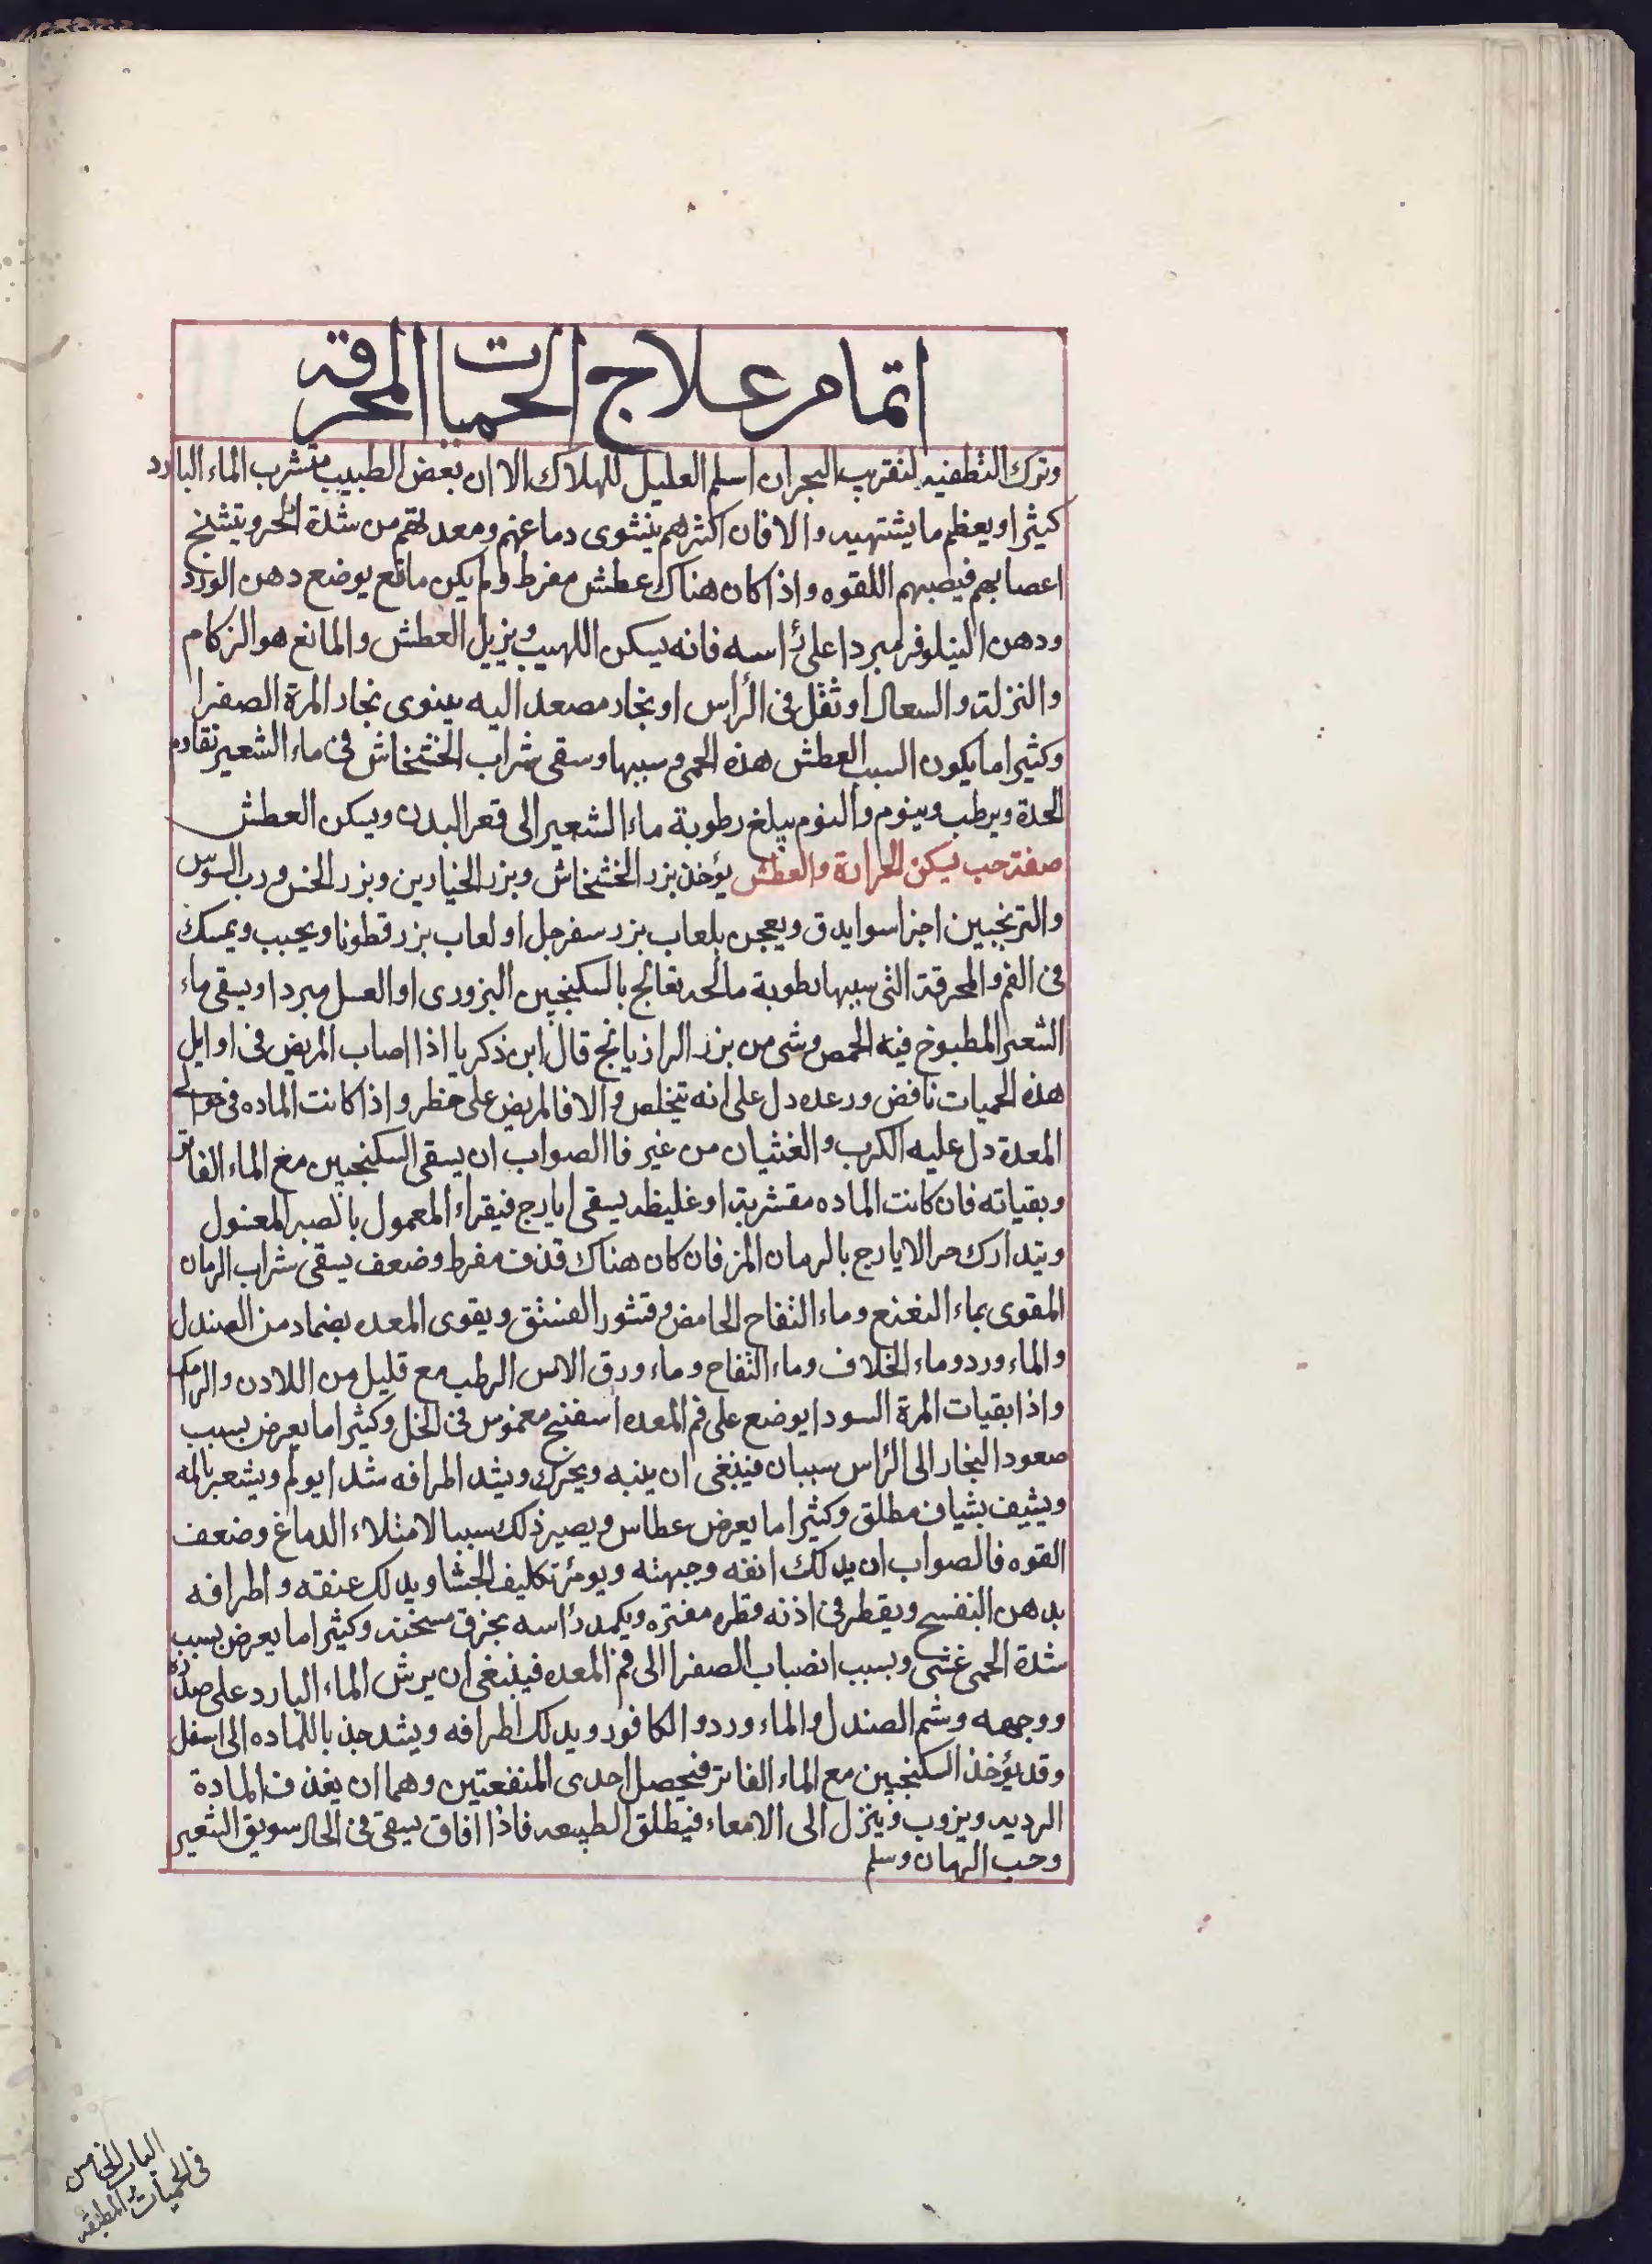 اتمام علاج الحميات المحرقه
وترك التطفيه لتقرب البحران اسلم العليل للهلاك الا ان بعض الطبيب بشرب الماء البارد
كثيرا ويعظم ما يشتهيه والا فان اكثرهم ينشوى دماغهم ومعدتهم من شدة الحر ويتشنج
اعصابهم فيصبهم اللقوه واذا كان هناك عطش مفرط ولم يكن مانع يوضع دهن الورد
ودهن النيلوفر مبردا على رأسه فانه يسكن اللهيب ويزيل العطش والمانع هو الزكام
والنزلة والسعال او ثقل فى الرأس او بخار مصعد اليه بينوى بخار المرة الصفرا
وكثيرا ما يكون السبب العطش هذه الحمى وسببها وسقى شراب الخشخاش فى ماء الشعير تقاوم
الحدة ويرطب وينوم والنوم يبلغ رطوبة ماء الشعير الى قعر البدن ويسكن العطش
صفة حب يسكن الحرارة والعطش يؤخذ بزر الخشخاش وبزر الخيارين وبزر الخس ورب السوس
والترنجبين اجزا سوا يدق ويعجن بلعاب بزر سفرجل او لعاب بزر قطونا ويحبب ويمسك
فى الفم والمحرقة التى سببها رطوبة مالحه تعالج بالسكنجبين البزورى او العسل مبردا ويسقى ماء
الشعير المطبوخ فيه الحمص وشى من بزر الرازيانج قال ابن زكريا اذا اصاب المريض فى اوايل
هذه الحميات نافض ورعده دل على انه يتخلص والا فالمريض على خطر واذا كانت الماده فى حوالى
المعدة دل عليه الكرب والغثيان من غير فا الصواب ان يسقى السكنجبين مع الماء الفاتر
وبقياته فان كانت الماده مقشربة او غليظه يسقى ايارج فيقراء المعمول بالصبر المغسول
ويتدارك حر الايارج بالرمان المز فان كان هناك قذف مفرط وضعف يسقى شراب الرمان
المقوى بماء النعنع وماء التفاح الحامض وقشور الفستق ويقوى المعده بضماد من الصندل
والماء ورد وماء الخلاف وماء التفاح وماء ورق الاس الرطب مع قليل من اللادن والرامك
واذا بقيات المرة السودا يوضع على فم المعده اسفنج مغموس فى الخل وكثيرا ما يعرض بسبب
صعود البخار الى الرأس سبات فينبغى ان ينبه ويحرك ويشد اطرافه شدا يولم ويشعر بالمه
ويشيف بشياف مطلق وكثيرا ما يعرض عطاس ويصير ذلك سببا لامتلاء الدماغ وضعف
القوه فالصواب ان يدلك انفه وجبهته ويومر تكليف الجشا ويدلك عنقه واطرافه
بدهن البنفسج ويقطر فى اذنه قطره مفتره ويكمد رأسه بخرق مسخنه وكثيرا ما يعرض بسبب
شدة الحمى غشى وبسبب انصباب الصفرا الى فم المعده فينبغى ان يرش الماء البارد على صدره
ووجهه وشم الصندل والماء ورد والكافور ويدلك اطرافه ويشد جذبا للماده الى اسفل
وقد يؤخذ السكنجبين مع الماء الفاتر فيحصل احدى المنفعتين وهما ان يغذف المادة
الرديه ويزوب وينزل الى الامعاء فيطلق الطبيعه فاذا افاق يسقى فى الحال سويق الشعير
وحب الرمان وسلم
الباب الخامس
فى الحميات المطبقه